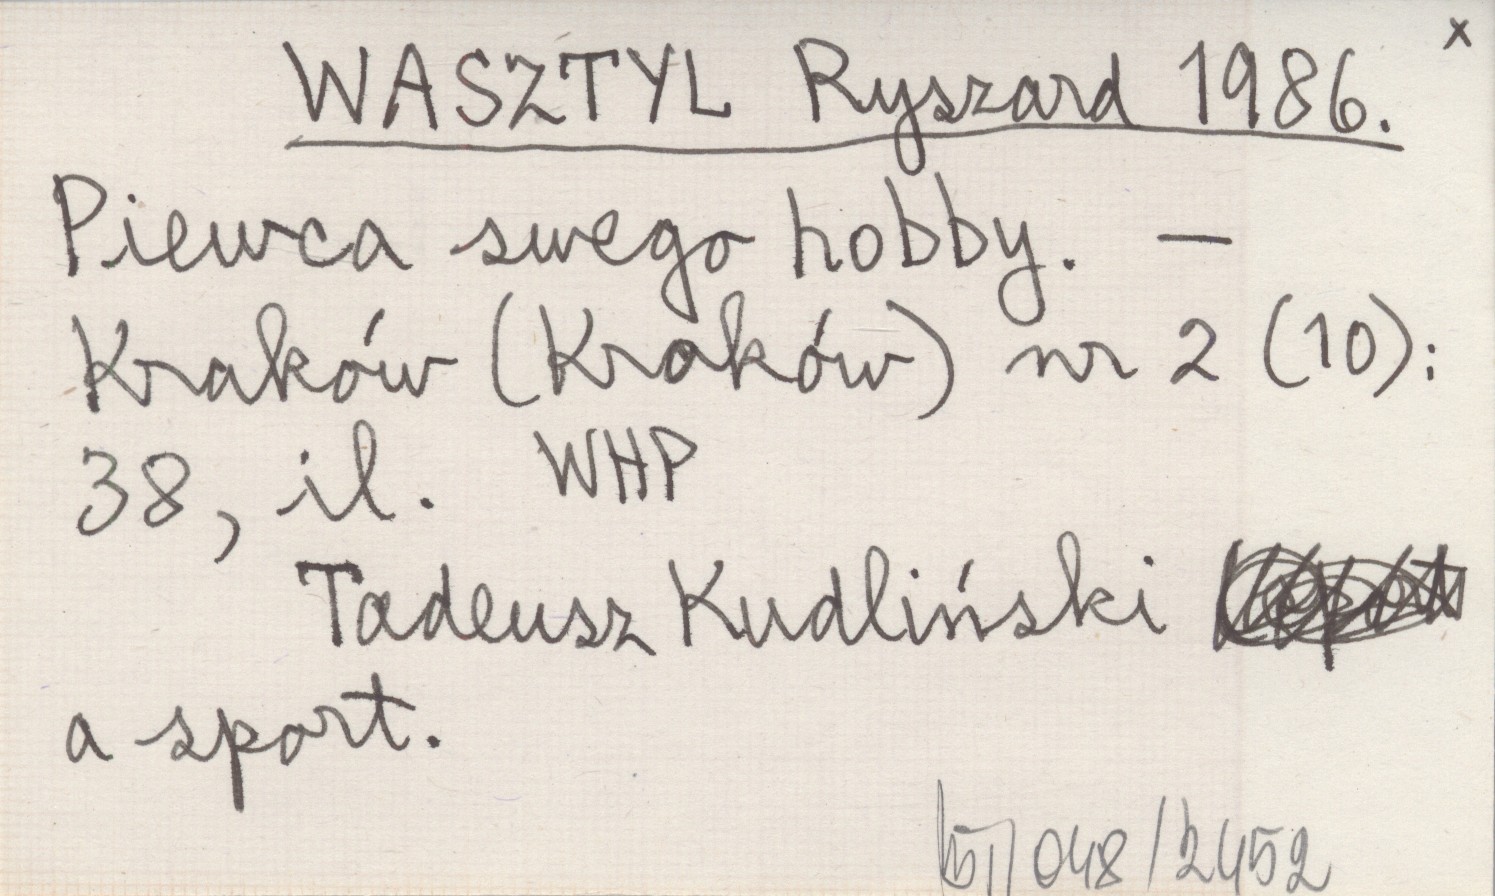 x
WASZTYL Ryszard 1986.
Piewca swego hobby. —
Kraków (Kraków) nr 2 (10):
38, il. WHP
Tadeusz Kudliński
a sport.
048/2452